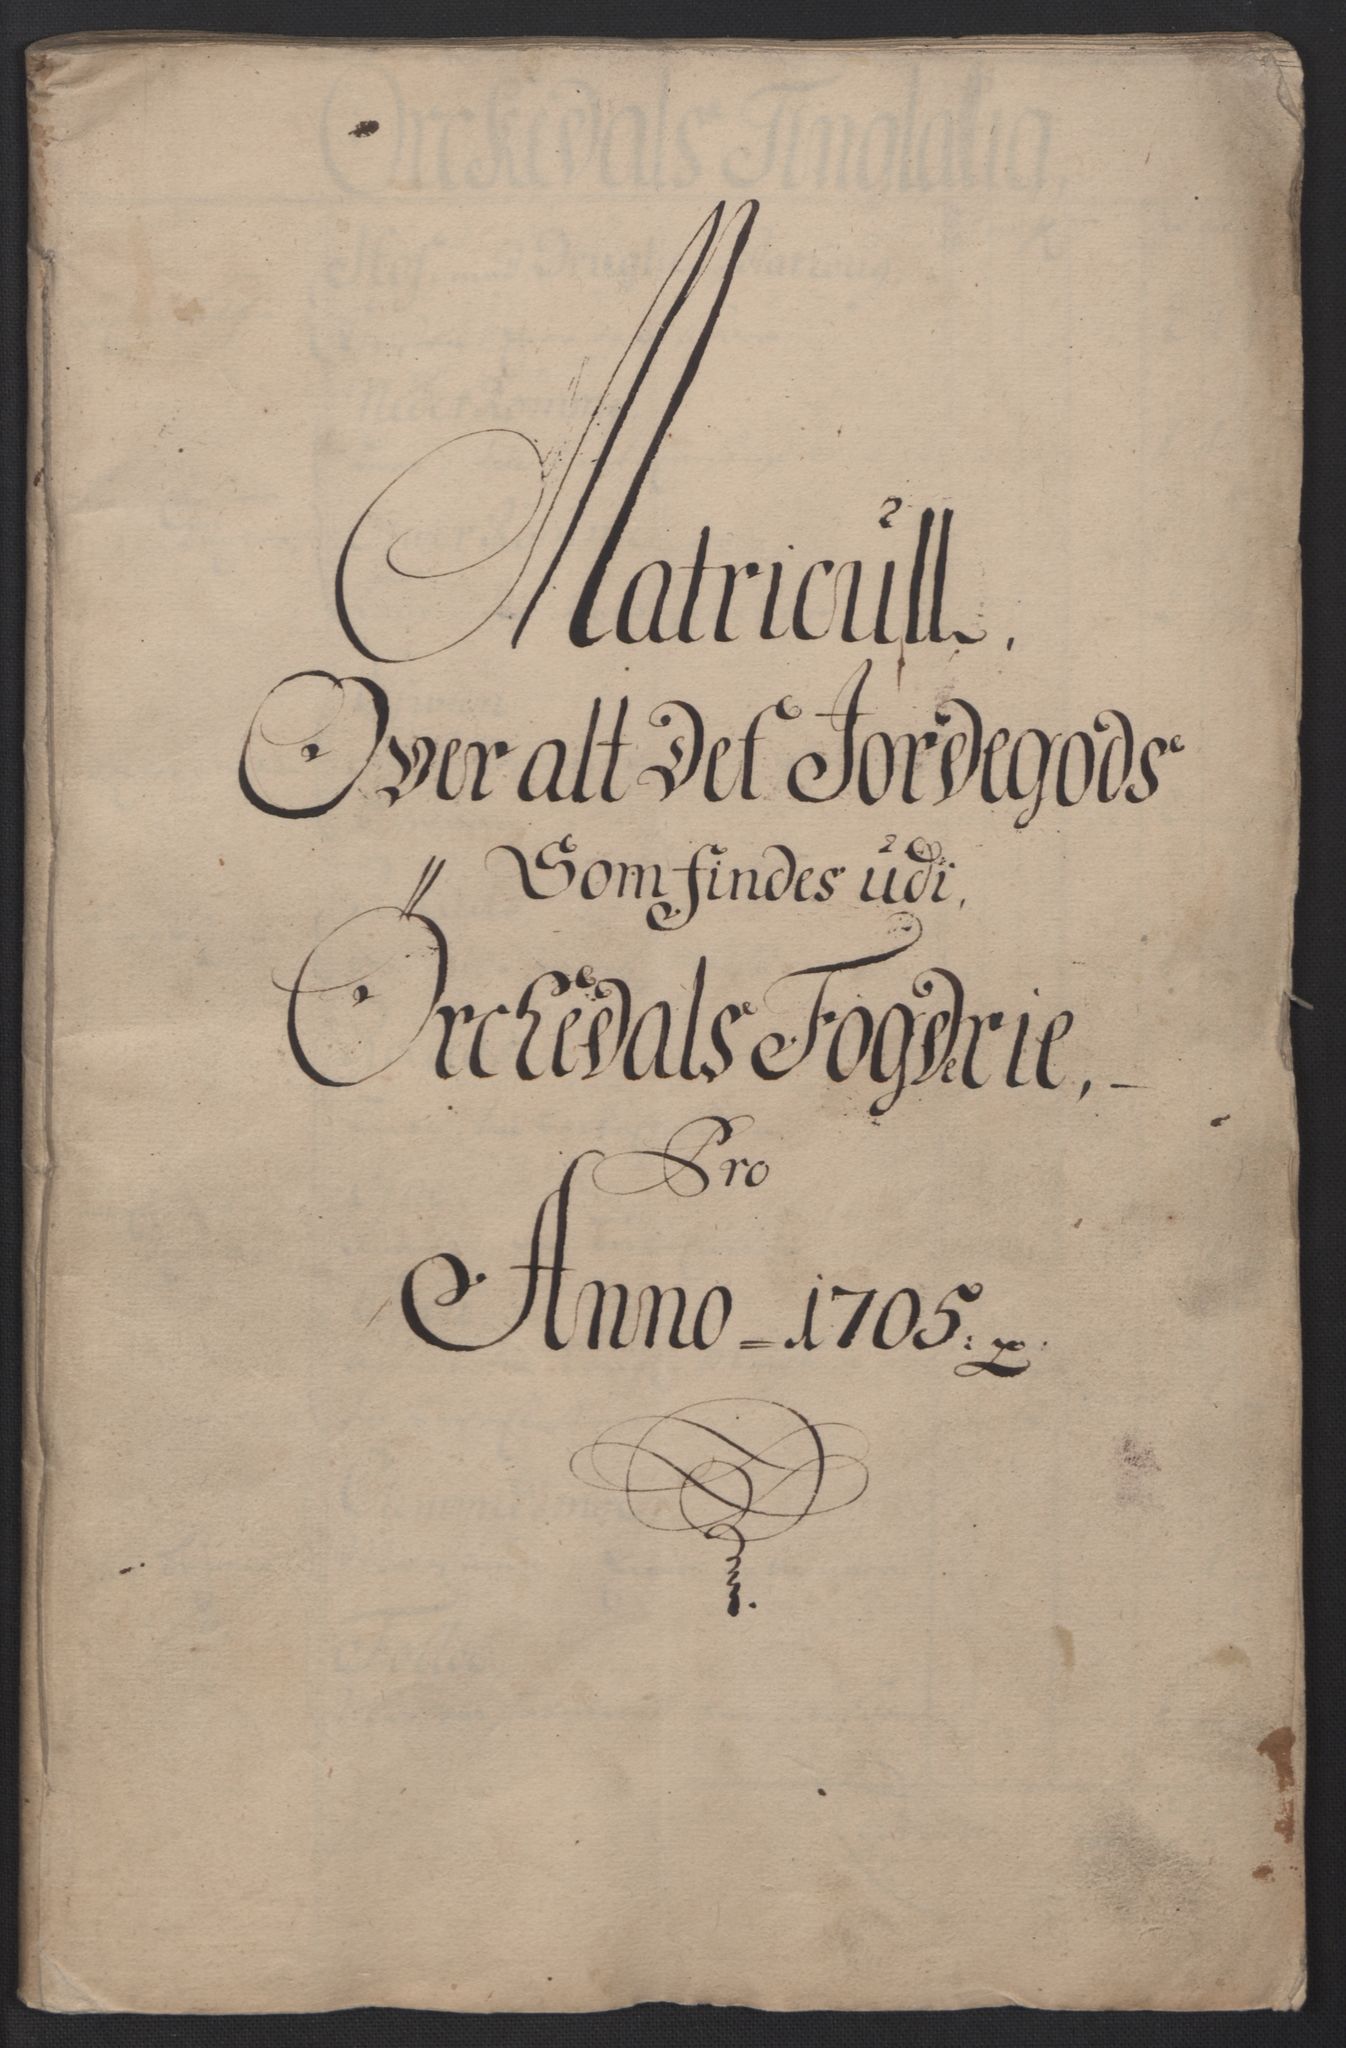 Matricull.
Over alt det Jordegods
Som findes udi,
Örckedals Fogderie,
Pro
Anno = 1705: